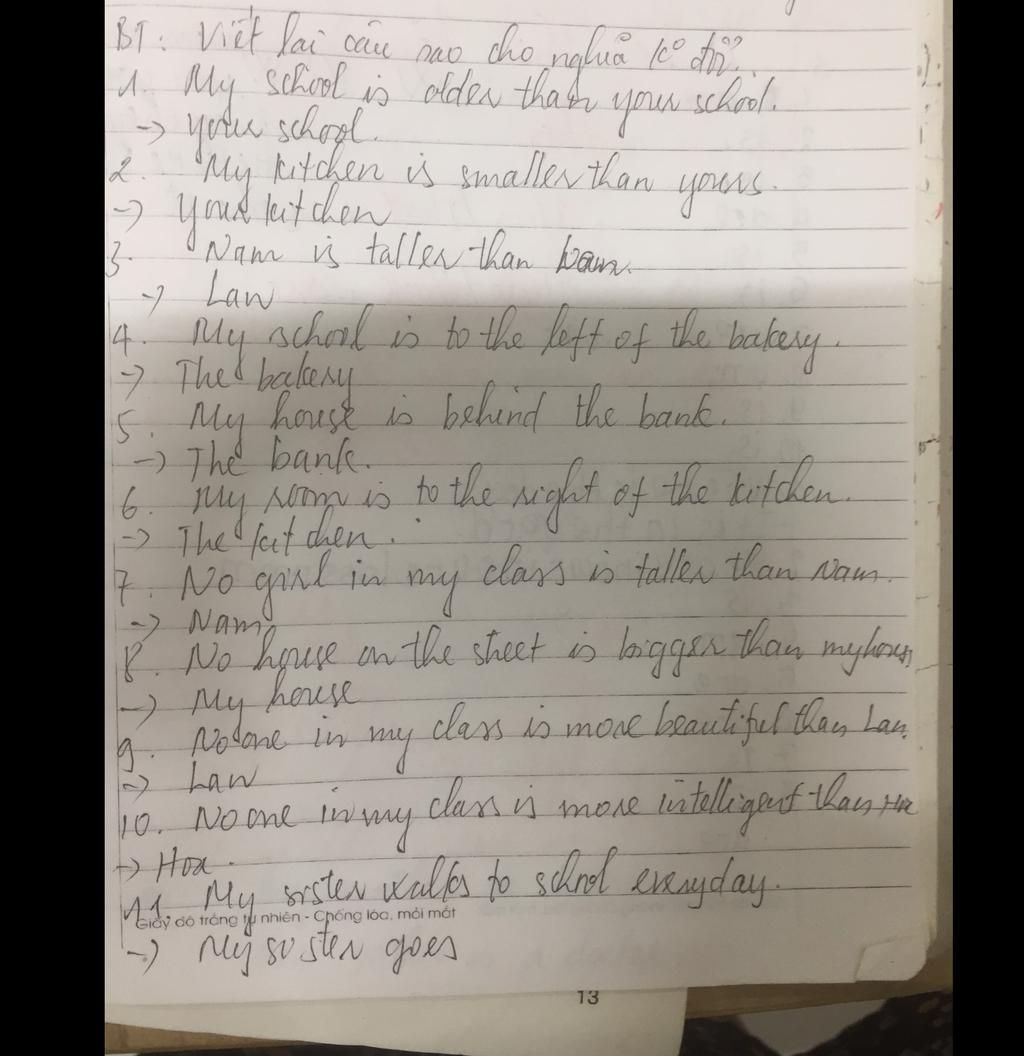 BT: Viết lại câu sao cho nghĩa ko đổi.
1. My school is older than your school.
-> your school.
2. My kitchen is smaller than yours.
-> Your kitchen
3. Nam is taller than
-> Lan
4. My school is to the left of the bakery.
-> The bakery
5. My house is behind the bank.
-> The bank.
6. My room is to the right of the kitchen.
-> The kitchen.
7. No girl in my class is taller than Nam.
-> Nam
8. No house on the street is bigger than my house
-> My house
9. No one in my class is more beautiful than Lan.
-> Lan
10. No one in my class is more intelligent than Hoa
-> Hoa.
11. My sister walks to school everyday.
Giấy có độ trắng tự nhiên - Chống lóa, mỏi mắt
-> My sister goes
13